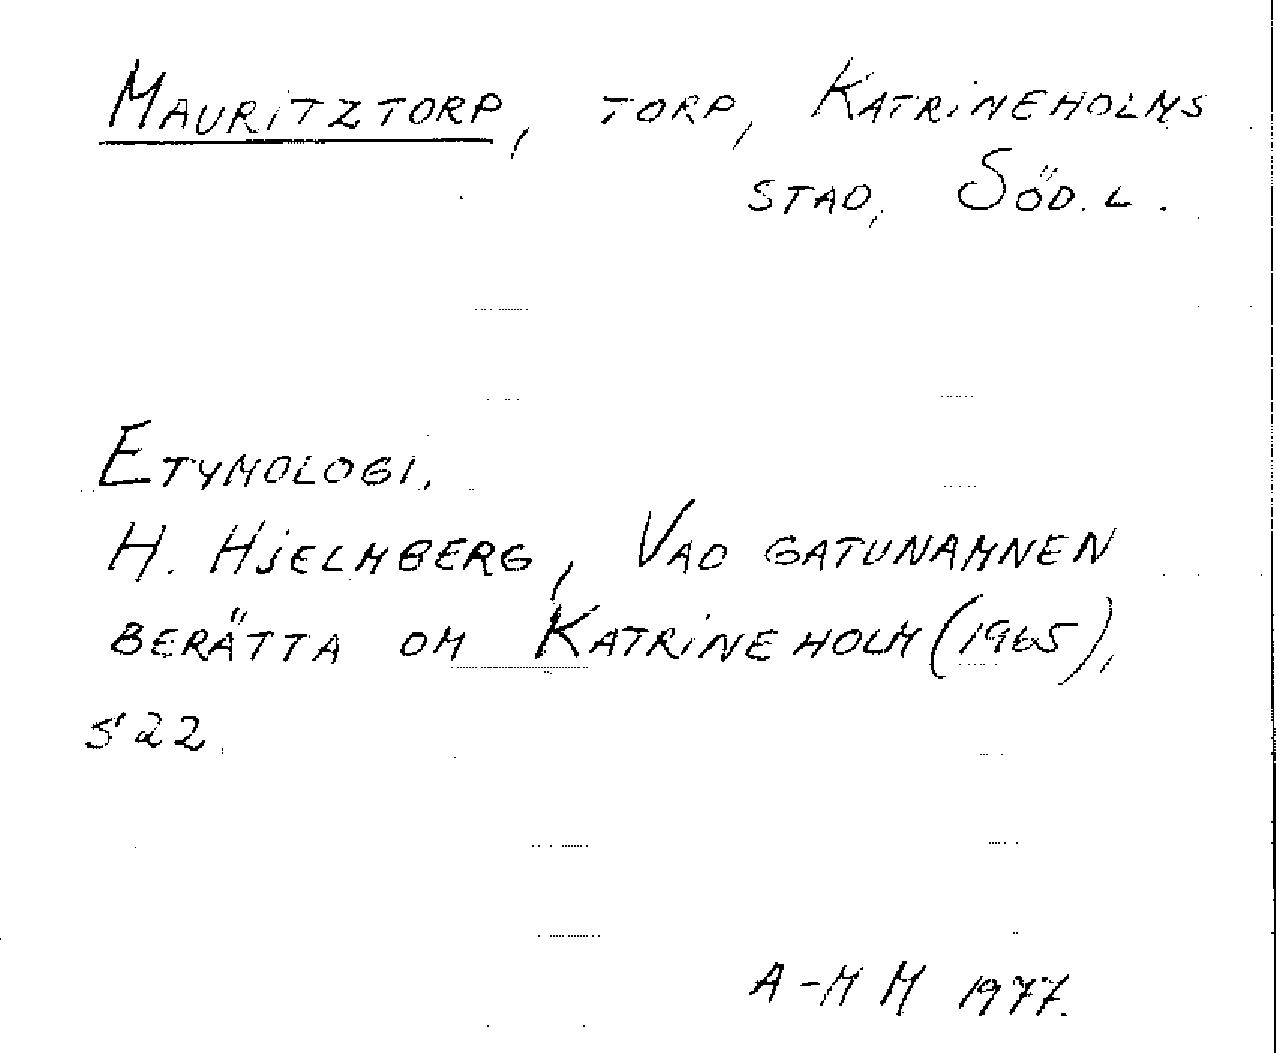 MAURITZTORP, TORP, KATRINEHOLMS
STAD, SÖD. L.
ETYMOLOGI.
H. HJELMBERG, VAD GATUNAMNEN
BERÄTTA OM KATRINEHOLM (1965),
S 22.
A-M M 1977.